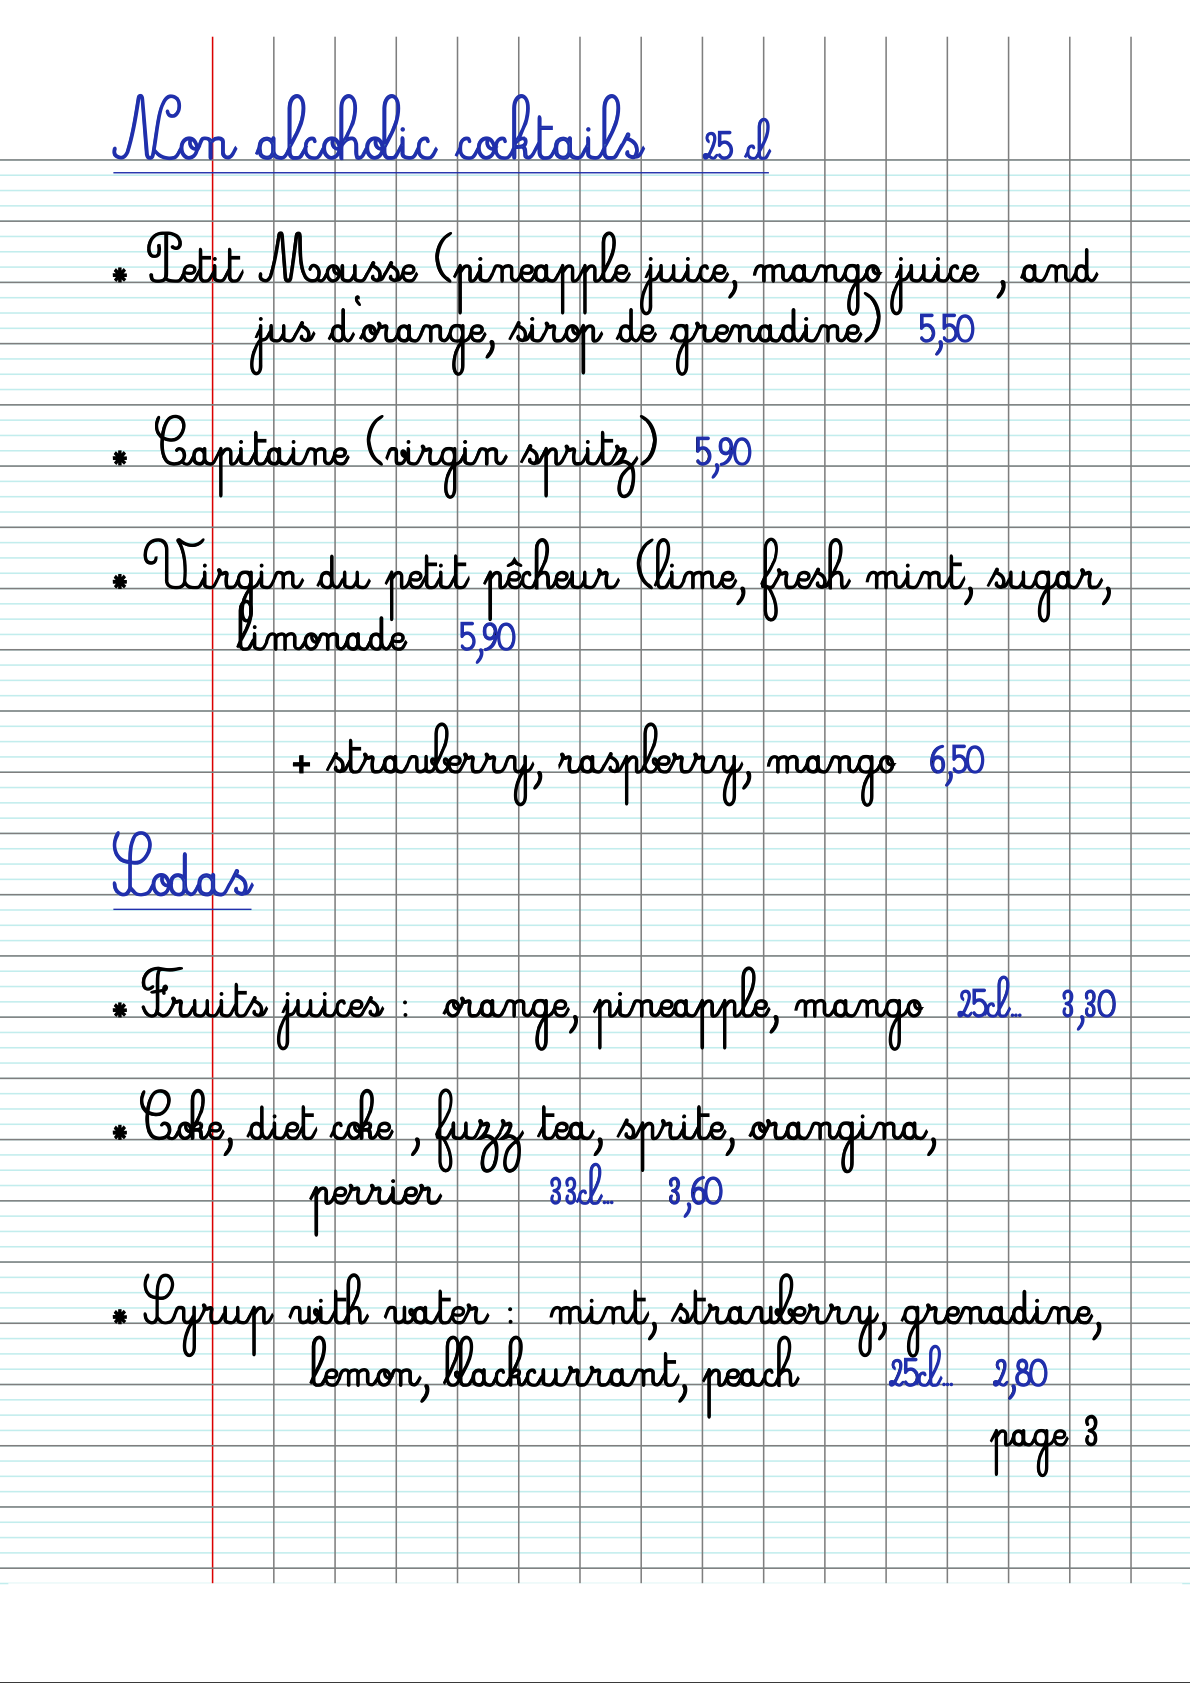 Non alcoholic cocktails 25 cl
* Petit Mousse (pineapple juice, mango juice , and
jus d'orange, sirop de grenadine) 5,50
* Capitaine (virgin spritz) 5,90
* Virgin du petit pêcheur (lime, fresh mint, sugar,
limonade 5,90
+ strawberry, raspberry, mango 6,50
Sodas
* Fruits juices : orange, pineapple, mango 25cl... 3,30
* Coke, diet coke , fuzz tea, sprite, orangina,
perrier 33cl... 3,60
* Syrup with water : mint, strawberry, grenadine,
lemon, blackcurrant, peach 25cl... 2,80
page 3